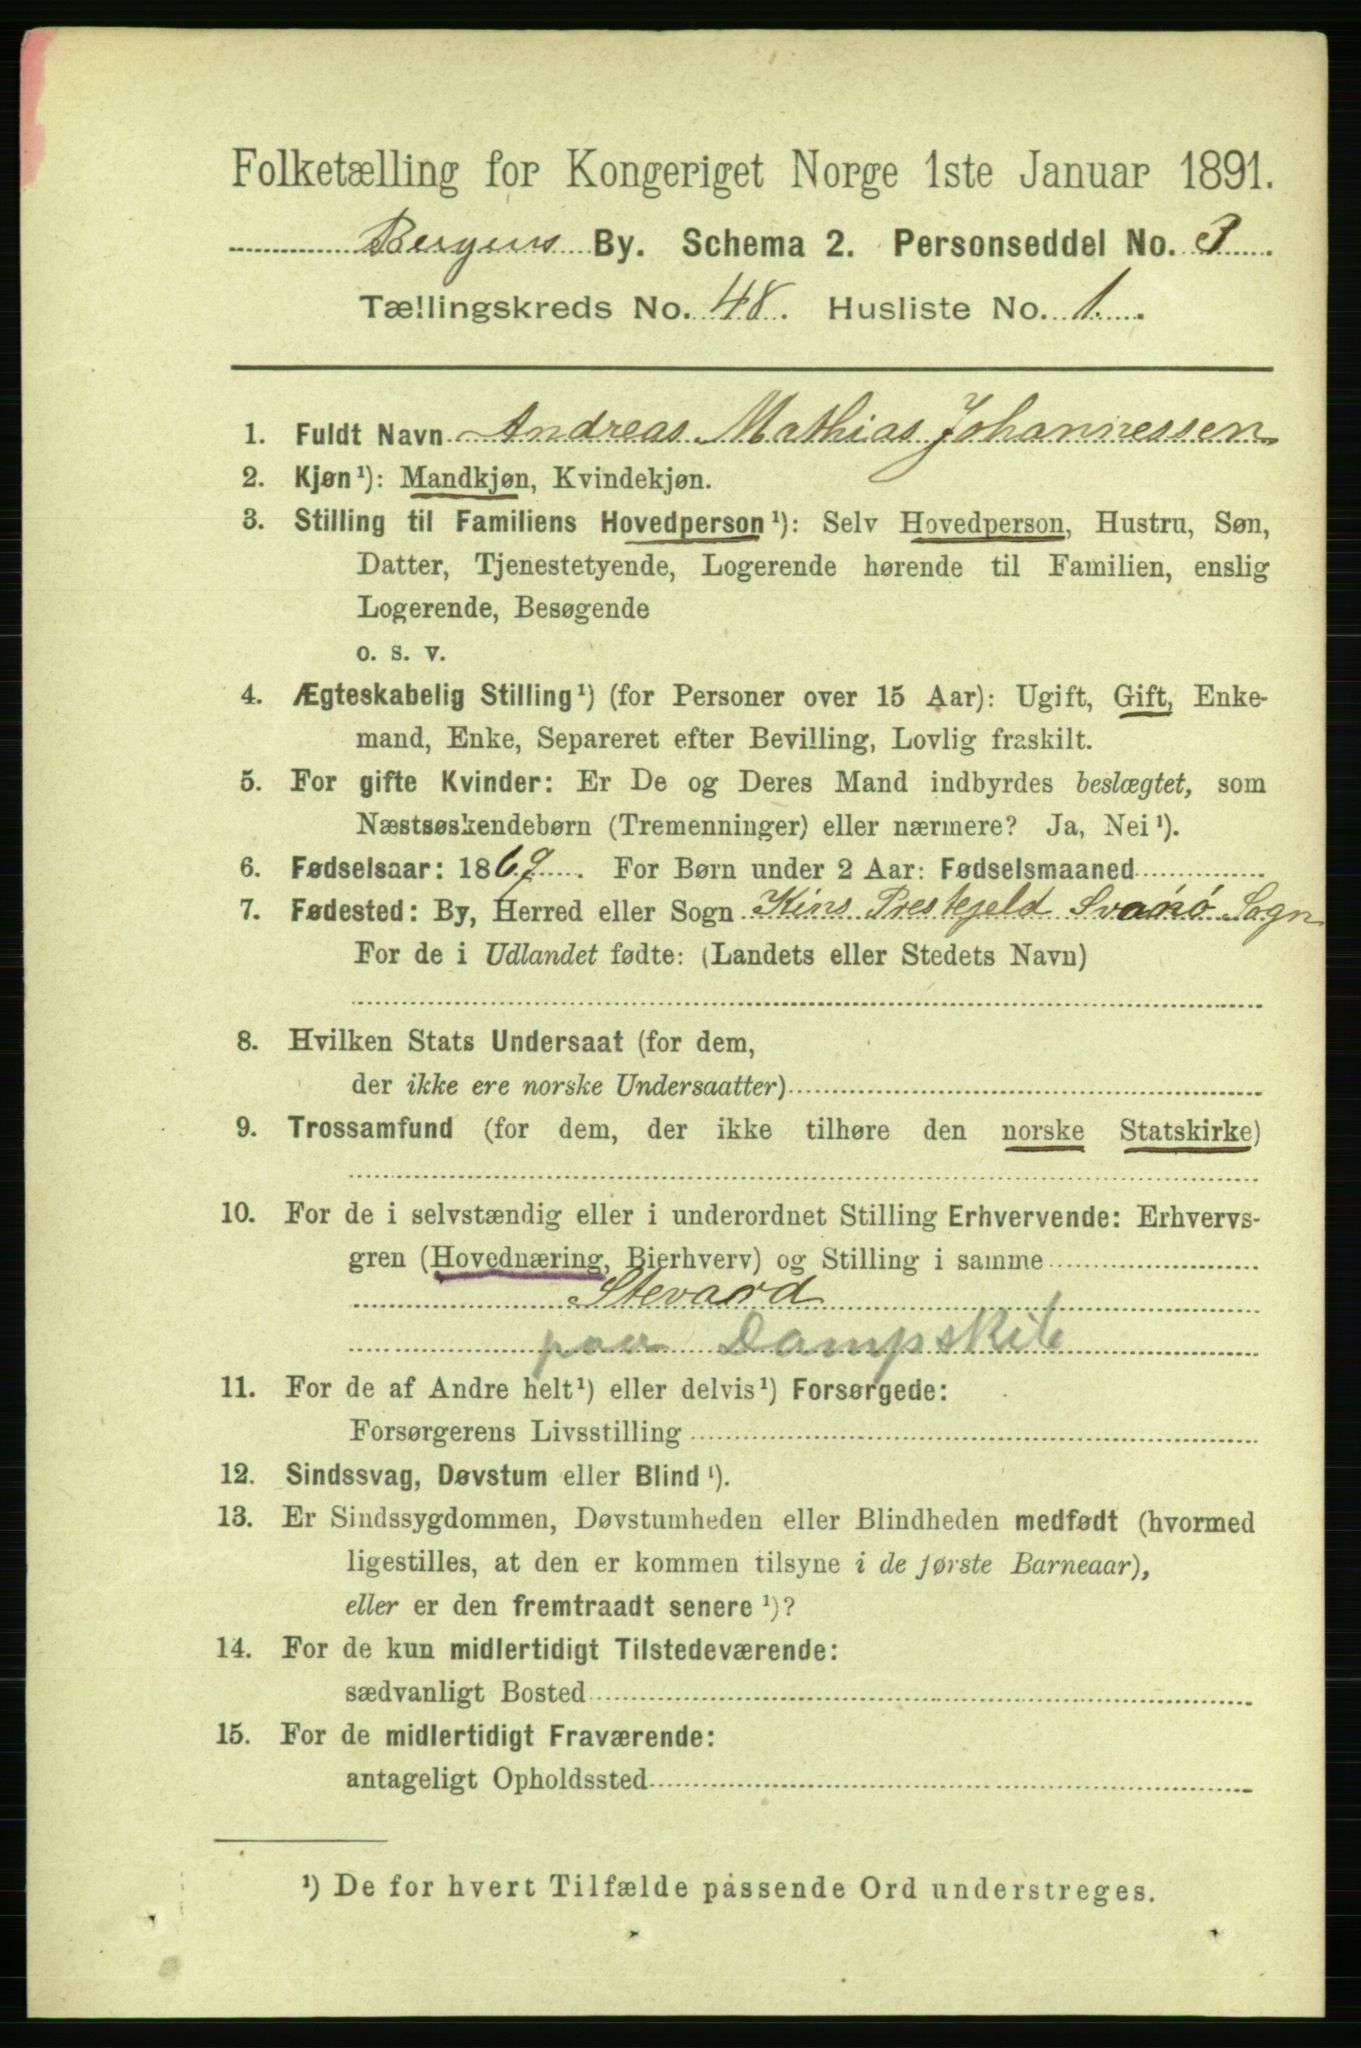 Folketælling for Kongeriget Norge 1ste Januar 1891.
Bergens By. Schema 2. Personseddel No. 3
Tællingskreds No. 48. Husliste No. 1.
1. Fuldt Navn Andreas Mathias Johannessen
2. Kjøn¹): Mandkjøn, Kvindekjøn.
3. Stilling til Familiens Hovedperson¹): Selv Hovedperson, Hustru, Søn,
Datter, Tjenestetyende, Logerende hørende til Familien, enslig
Logerende, Besøgende
o. s. v.
4. Ægteskabelig Stilling¹) (for Personer over 15 Aar): Ugift, Gift, Enke-
mand, Enke, Separeret efter Bevilling, Lovlig fraskilt.
5. For gifte Kvinder: Er De og Deres Mand indbyrdes beslægtet, som
Næstsøskendebørn (Tremenninger) eller nærmere? Ja, Nei¹).
6. Fødselsaar: 1869. For Børn under 2 Aar: Fødselsmaaned
7. Fødested: By, Herred eller Sogn Kins Prestejeld Svanø Sogn
For de i Udlandet fødte: (Landets eller Stedets Navn)
8. Hvilken Stats Undersaat (for dem,
der ikke ere norske Undersaatter)
9. Trossamfund (for dem, der ikke tilhøre den norske Statskirke)
10. For de i selvstændig eller i underordnet Stilling Erhvervende: Erhvervs-
gren (Hovednæring, Bierhverv) og Stilling i samme
Stevard
paa Dampskib
11. For de af Andre helt¹) eller delvis¹) Forsørgede:
Forsørgerens Livsstilling
12. Sindssvag, Døvstum eller Blind¹).
13. Er Sindssygdommen, Døvstumheden eller Blindheden medfødt (hvormed
ligestilles, at den er kommen tilsyne i de første Barneaar),
eller er den fremtraadt senere¹)?
14. For de kun midlertidigt Tilstedeværende:
sædvanligt Bosted
15. For de midlertidigt Fraværende:
antageligt Opholdssted
¹) De for hvert Tilfælde passende Ord understreges.